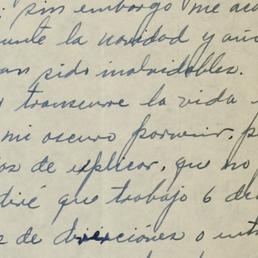 sin embargo me aca
la navidad y añ
an sido inolvidables.
transcurre la vida
mi oscuro porvenir, p
os de esplicar, que no
diré que trabajo 6 dia
s de direcciónes o entr